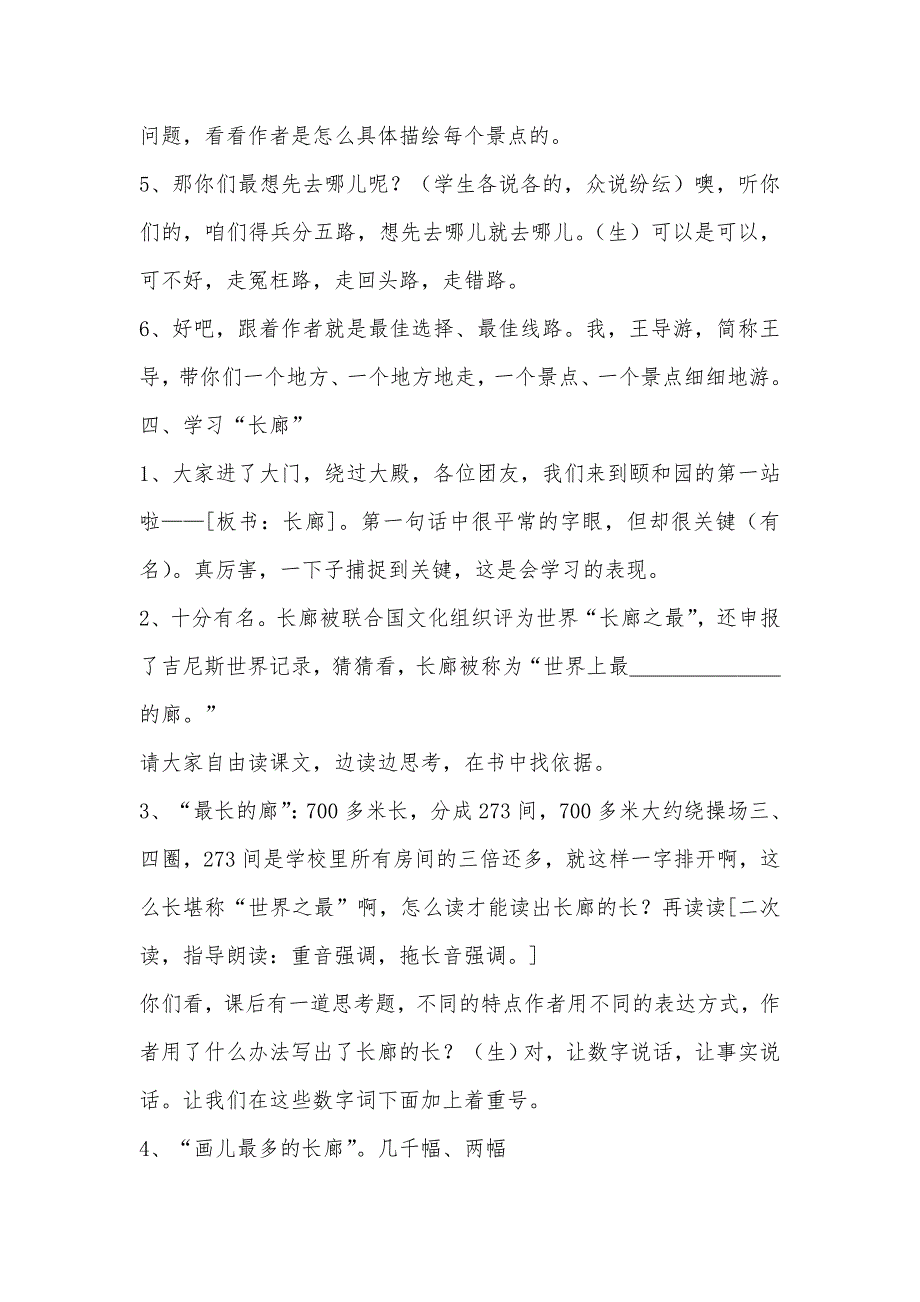 问题，看看作者是怎么具体描绘每个景点的。
5、那你们最想先去哪儿呢？（学生各说各的，众说纷纭）噢，听你
们的，咱们得兵分五路，想先去哪儿就去哪儿。（生）可以是可以，
可不好，走冤枉路，走回头路，走错路。
6、好吧，跟着作者就是最佳选择、最佳线路。我，王导游，简称王
导，带你们一个地方、一个地方地走，一个景点、一个景点细细地游。
四、学习“长廊”
1、大家进了大门，绕过大殿，各位团友，我们来到颐和园的第一站
啦——[板书：长廊]。第一句话中很平常的字眼，但却很关键（有
名）。真厉害，一下子捕捉到关键，这是会学习的表现。
2、十分有名。长廊被联合国文化组织评为世界“长廊之最”，还申报
了吉尼斯世界记录，猜猜看，长廊被称为“世界上最______________
的廊。”
请大家自由读课文，边读边思考，在书中找依据。
3、“最长的廊”：700 多米长，分成 273 间，700 多米大约绕操场三、
四圈，273 间是学校里所有房间的三倍还多，就这样一字排开啊，这
么长堪称“世界之最”啊，怎么读才能读出长廊的长？再读读[二次
读，指导朗读：重音强调，拖长音强调。]
你们看，课后有一道思考题，不同的特点作者用不同的表达方式，作
者用了什么办法写出了长廊的长？（生）对，让数字说话，让事实说
话。让我们在这些数字词下面加上着重号。
4、“画儿最多的长廊”。几千幅、两幅